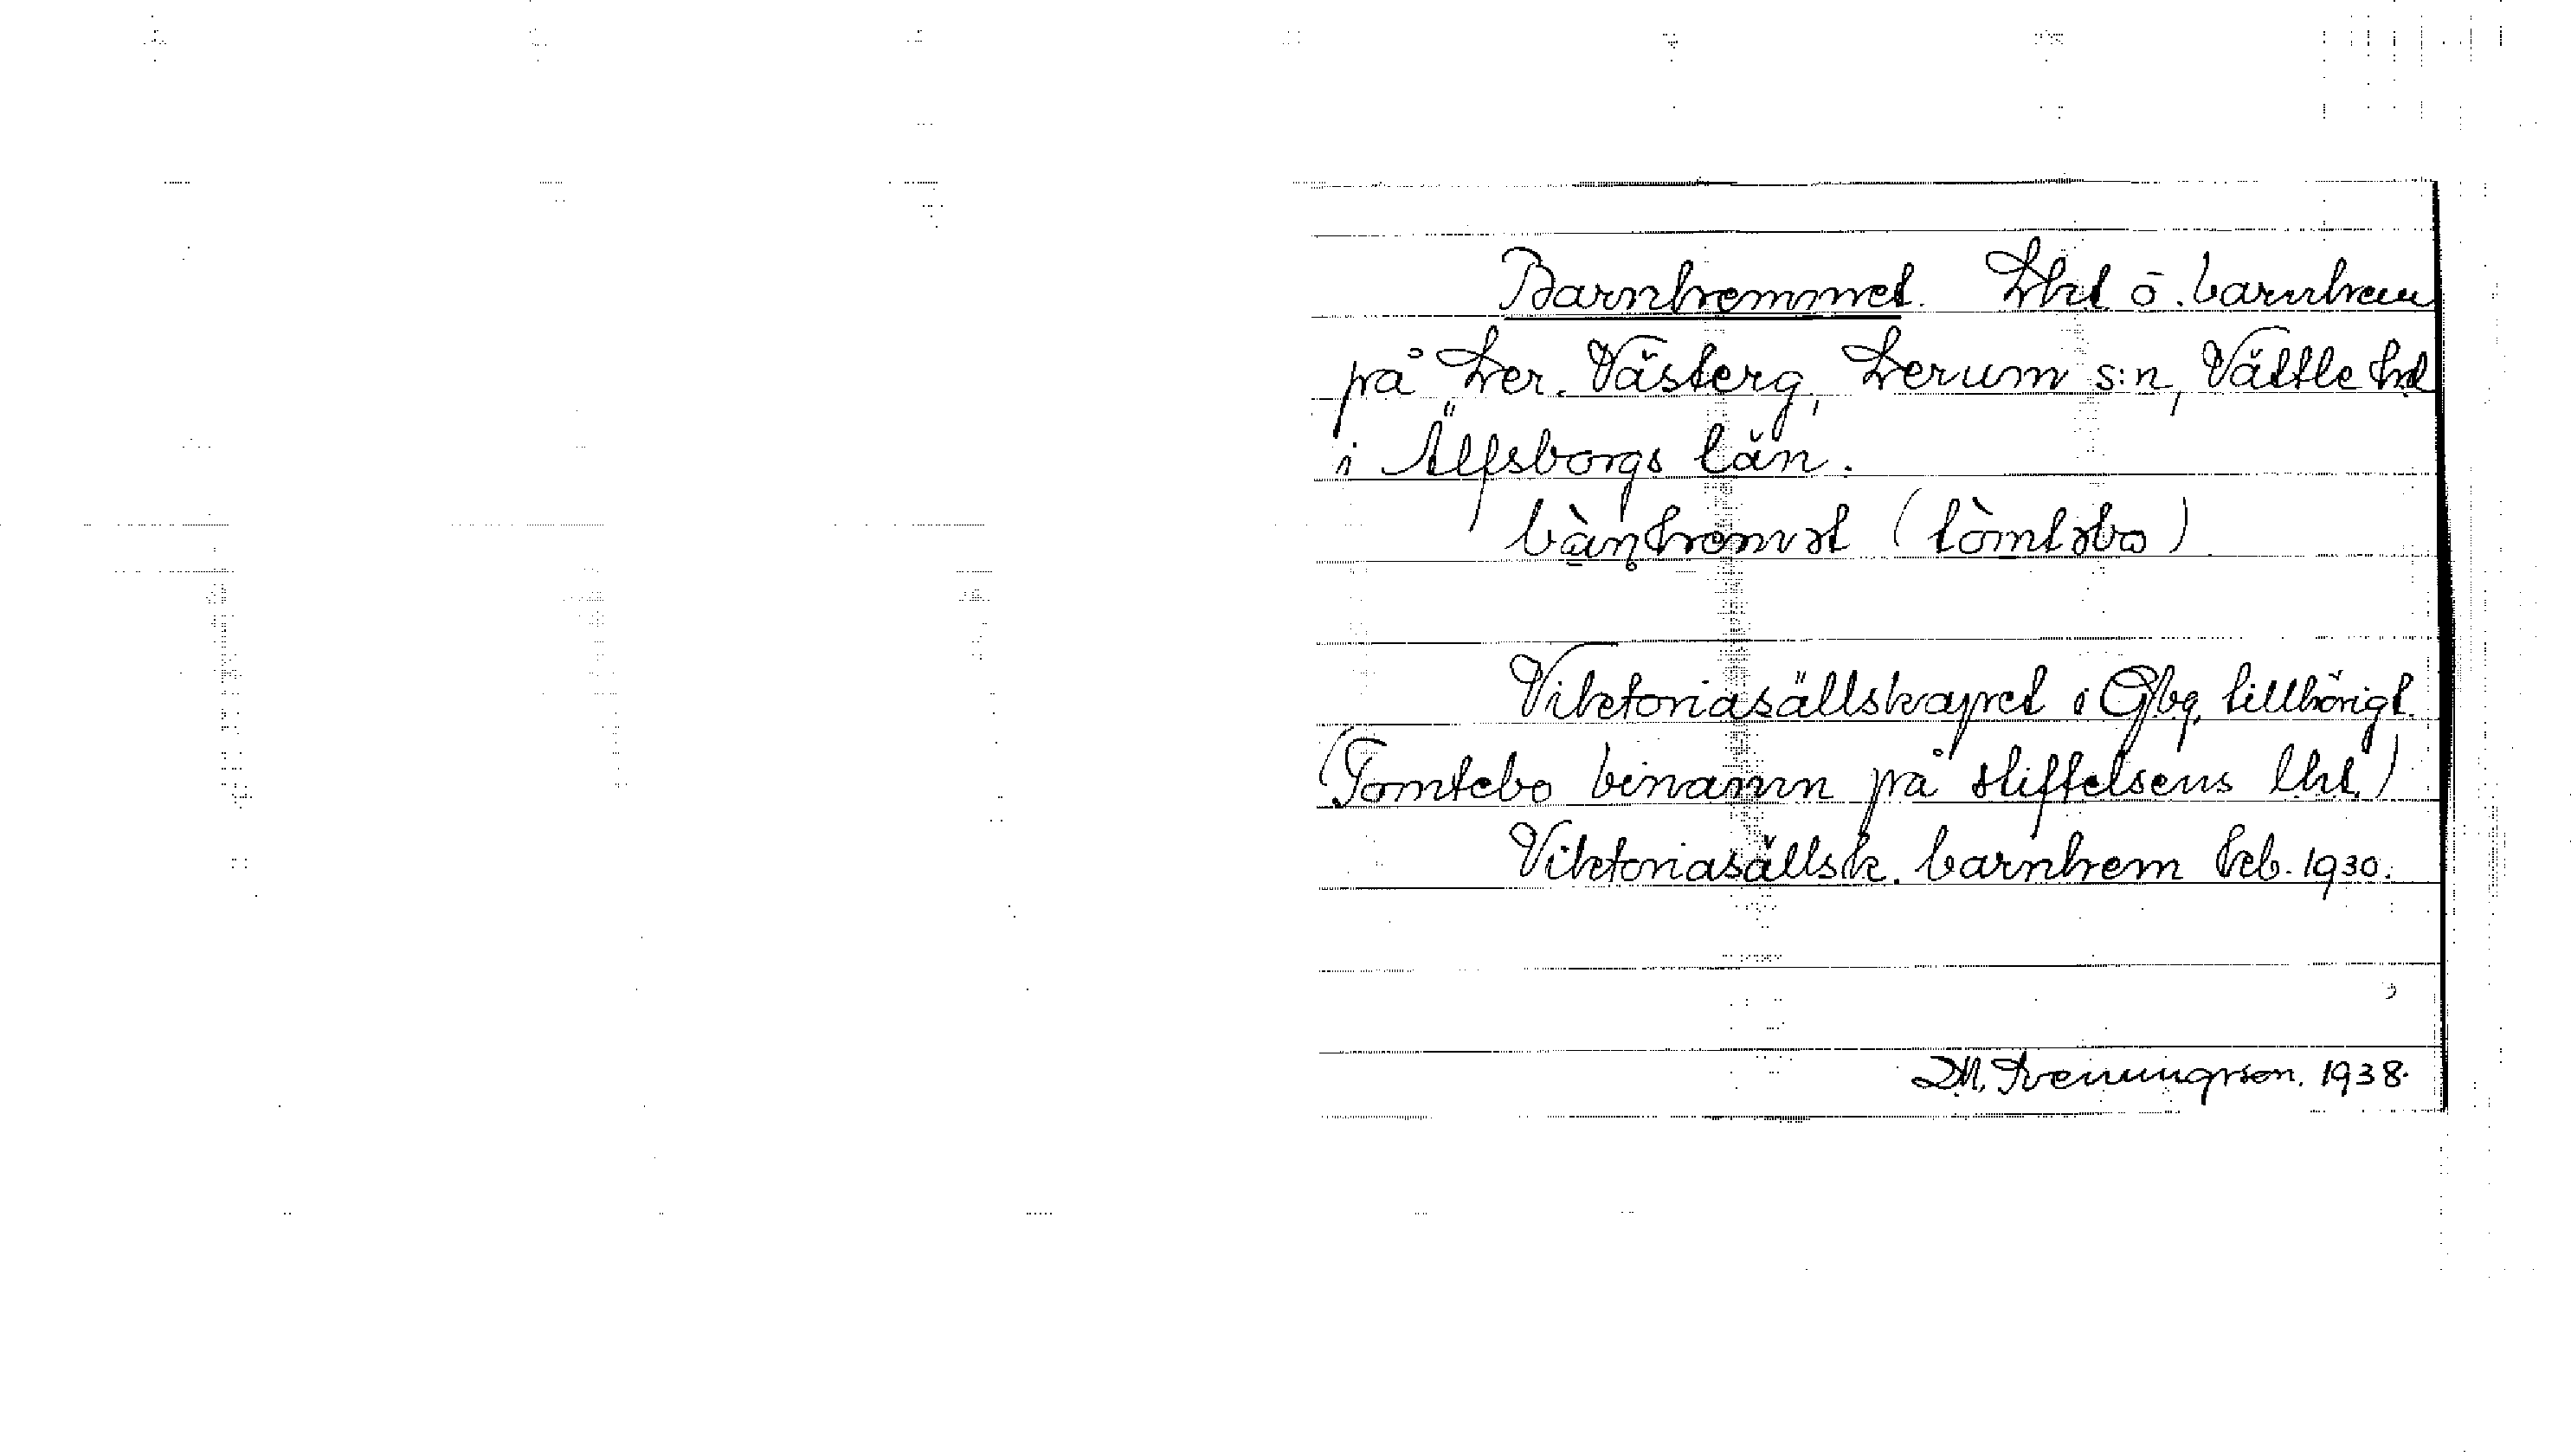 Barnhemmet. Lht o. barnhem
på Ler. Västerg, Lerum s:n, Vättle hd
i Älfsborgs län.
bàɳhemət (tòmtəbo)
Viktoriasällskapet i Gbg, tillhörigt.
(Tomtebo binamn på stiftelsens lht.)
Viktoriasällsk. barnhem Feb. 1930.
Svenungsson. 1938.